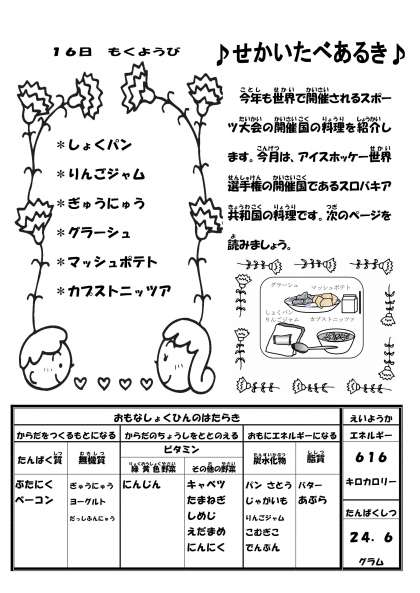 16日 もくようび
♪せかいたべあるき♪
*しょくパン
*りんごジャム
*ぎゅうにゅう
*グラーシュ
*マッシュポテト
*カプストニッツア
今年も世界で開催されるスポー
ツ大会の開催国の料理を紹介し
ます。今月は、アイスホッケー世界
選手権の開催国であるスロバキア
共和国の料理です。次のページを
読みましょう。
グラーシュ マッシュポテト
しょくパン
りんごジャム カプストニッツァ
おもなしょくひんのはたらき
えいようか
からだをつくるもとになる からだのちょうしをととのえる おもにエネルギーになる
エネルギー
たんぱく質 無機質 ビタミン 炭水化物 脂質
緑黄色野菜 その他の野菜
616
キロカロリー
ぶたにく ぎゅうにゅう にんじん キャベツ パン さとう バター
ベーコン ヨーグルト たまねぎ じゃがいも あぶら
だっしふんにゅう しめじ りんごジャム
えだまめ こむぎこ
にんにく でんぷん
たんぱくしつ
24.6
グラム